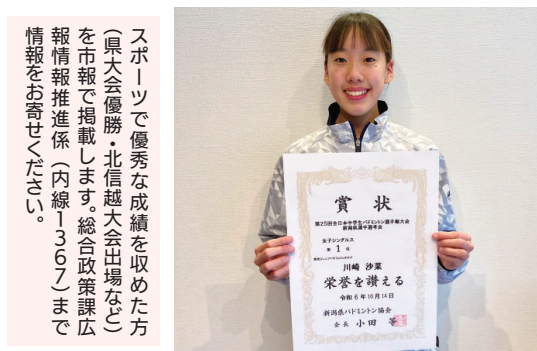 スポーツで優秀な成績を収めた方
(県大会優勝・北信越大会出場など)
を市報で掲載します。総合政策課広
報情報推進係(内線1367)まで
情報をお寄せください。
賞状
第25回全日本中学生バドミントン選手権大会
新潟県選手選考会
女子シングルス
第1位
川崎 沙菜
栄誉を讃える
令和6年10月14日
新潟県バドミントン協会
会長 小田 等